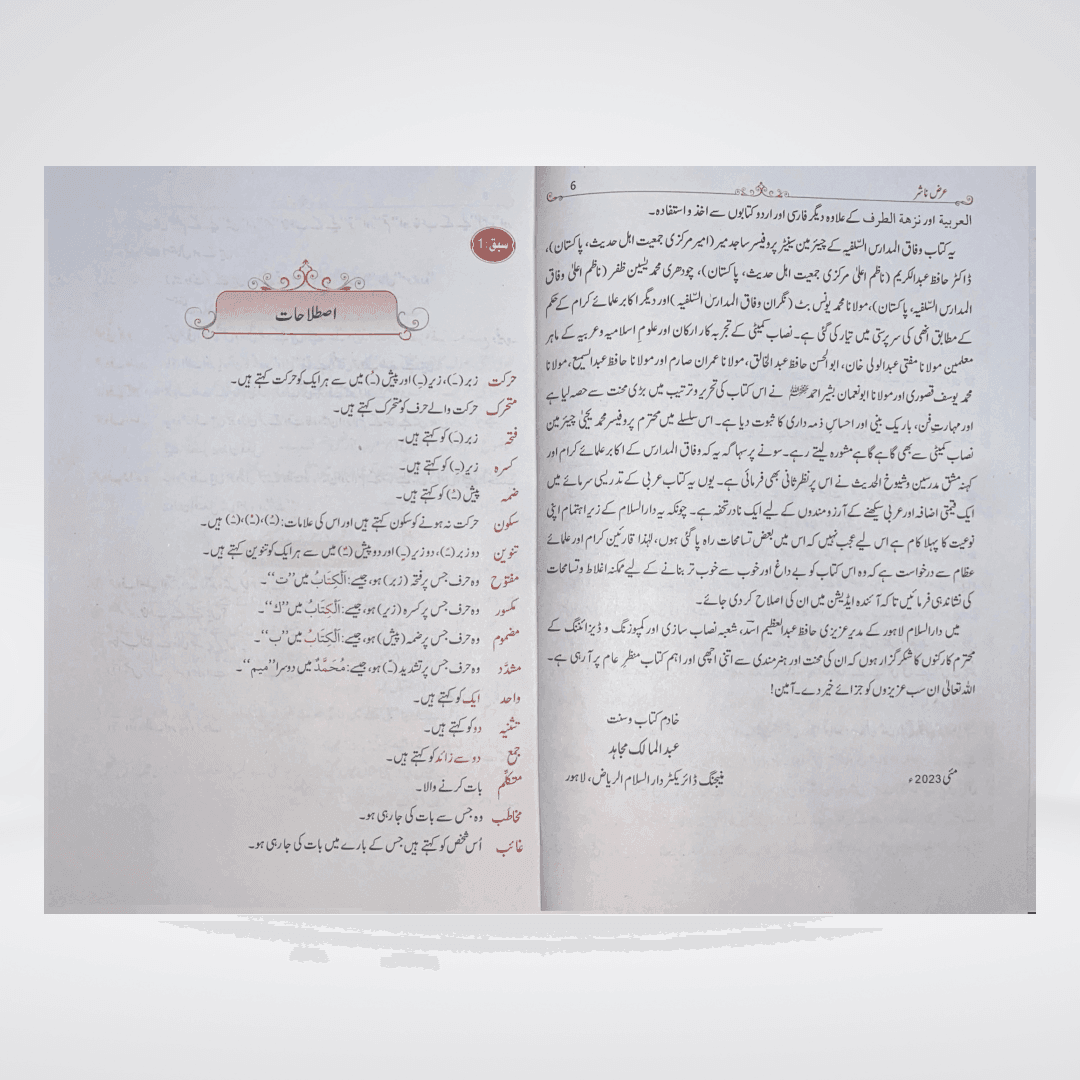 عرض ناشر
6
العربية اور نزهة الطرف کے علاوہ دیگر فارسی اور اردو کتابوں سے اخذ و استفادہ۔
یہ کتاب وفاق المدارس السّلفیہ کے چیئرمین سینیٹر پروفیسر ساجد میر (امیر مرکزی جمعیت اہل حدیث، پاکستان)،
ڈاکٹر حافظ عبدالکریم (ناظم اعلیٰ مرکزی جمعیت اہل حدیث، پاکستان)، چودھری محمد یٰسین ظفر (ناظم اعلیٰ وفاق
المدارس السّلفیہ، پاکستان)، مولانا محمد یونس بٹ (نگران وفاق المدارس السّلفیہ) اور دیگر اکابر علمائے کرام کے حکم
کے مطابق انھی کی سرپرستی میں تیار کی گئی ہے۔ نصاب کمیٹی کے تجربہ کار ارکان اور علومِ اسلامیہ و عربیہ کے ماہر
معلمین مولانا مفتی عبدالولی خان، ابوالحسن حافظ عبدالخالق، مولانا عمران صارم اور مولانا حافظ عبدالسمیع، مولانا
محمد یوسف قصوری اور مولانا ابو نعمان بشیر احمد نے اس کتاب کی تحریر و ترتیب میں بڑی محنت سے حصہ لیا ہے
اور مہارتِ فن، باریک بینی اور احساسِ ذمہ داری کا ثبوت دیا ہے۔ اس سلسلے میں محترم پروفیسر محمد یحییٰ چیئرمین
نصاب کمیٹی سے بھی گاہے گاہے مشورہ لیتے رہے۔ سونے پر سہاگہ یہ کہ وفاق المدارس کے اکابر علمائے کرام اور
کہنہ مشق مدرسین و شیوخ الحدیث نے اس پر نظر ثانی بھی فرمائی ہے۔ یوں یہ کتاب عربی کے تدریسی سرمائے میں
ایک قیمتی اضافہ اور عربی سیکھنے کے آرزو مندوں کے لیے ایک نادر تحفہ ہے۔ چونکہ یہ دارالسلام کے زیر اہتمام اپنی
نوعیت کا پہلا کام ہے اس لیے عجب نہیں کہ اس میں بعض تسامحات راہ پا گئی ہوں، لہٰذا قارئین کرام اور علمائے
عظام سے درخواست ہے کہ وہ اس کتاب کو بے داغ اور خوب سے خوب تر بنانے کے لیے ممکنہ اغلاط و تسامحات
کی نشاندہی فرمائیں تاکہ آئندہ ایڈیشن میں ان کی اصلاح کر دی جائے۔
میں دارالسلام لاہور کے مدیر عزیزی حافظ عبدالعظیم اسدؔ، شعبہ نصاب سازی اور کمپوزنگ و ڈیزائننگ کے
محترم کارکنوں کا شکر گزار ہوں کہ ان کی محنت اور ہنرمندی سے اتنی اچھی اور اہم کتاب منظرِ عام پر آ رہی ہے۔
اللہ تعالیٰ اِن سب عزیزوں کو جزائے خیر دے۔ آمین!
خادم کتاب و سنت
عبدالمالک مجاہد
منیجنگ ڈائریکٹر دارالسلام الریاض، لاہور
مئی 2023ء
سبق: 1
اصطلاحات
حرکت زبر (ـَ)، زیر (ـِ) اور پیش (ـُ) میں سے ہر ایک کو حرکت کہتے ہیں۔
متحرک حرکت والے حرف کو متحرک کہتے ہیں۔
فتحہ زبر (ـَ) کو کہتے ہیں۔
کسرہ زیر (ـِ) کو کہتے ہیں۔
ضمہ پیش (ـُ) کو کہتے ہیں۔
سکون حرکت نہ ہونے کو سکون کہتے ہیں اور اس کی علامات: ہیں۔
تنوین دو زبر (ـً)، دو زیر (ـٍ) اور دو پیش (ـٌ) میں سے ہر ایک کو تنوین کہتے ہیں۔
مفتوح وہ حرف جس پر فتحہ (زبر) ہو، جیسے: اَلْكِتَابُ میں ”ت“۔
مکسور وہ حرف جس پر کسرہ (زیر) ہو، جیسے: اَلْكِتَابُ میں ”ك“۔
مضموم وہ حرف جس پر ضمہ (پیش) ہو، جیسے: اَلْكِتَابُ میں ”ب“۔
مشدّد وہ حرف جس پر تشدید (ـّ) ہو، جیسے: مُحَمَّدٌ میں دوسرا ”میم“۔
واحد ایک کو کہتے ہیں۔
تثنیہ دو کو کہتے ہیں۔
جمع دو سے زائد کو کہتے ہیں۔
متکلّم بات کرنے والا۔
مخاطَب وہ جس سے بات کی جا رہی ہو۔
غائب اُس شخص کو کہتے ہیں جس کے بارے میں بات کی جا رہی ہو۔